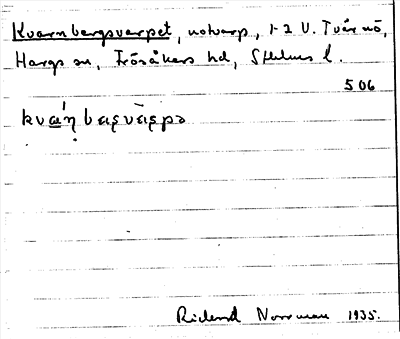 Kvarnbergsvarpet, notvarp, 1-2 V. Tvärnö,
Hargs sn, Frösåkers hd, Sthlms l.
506
Rickard Norrman 1935.